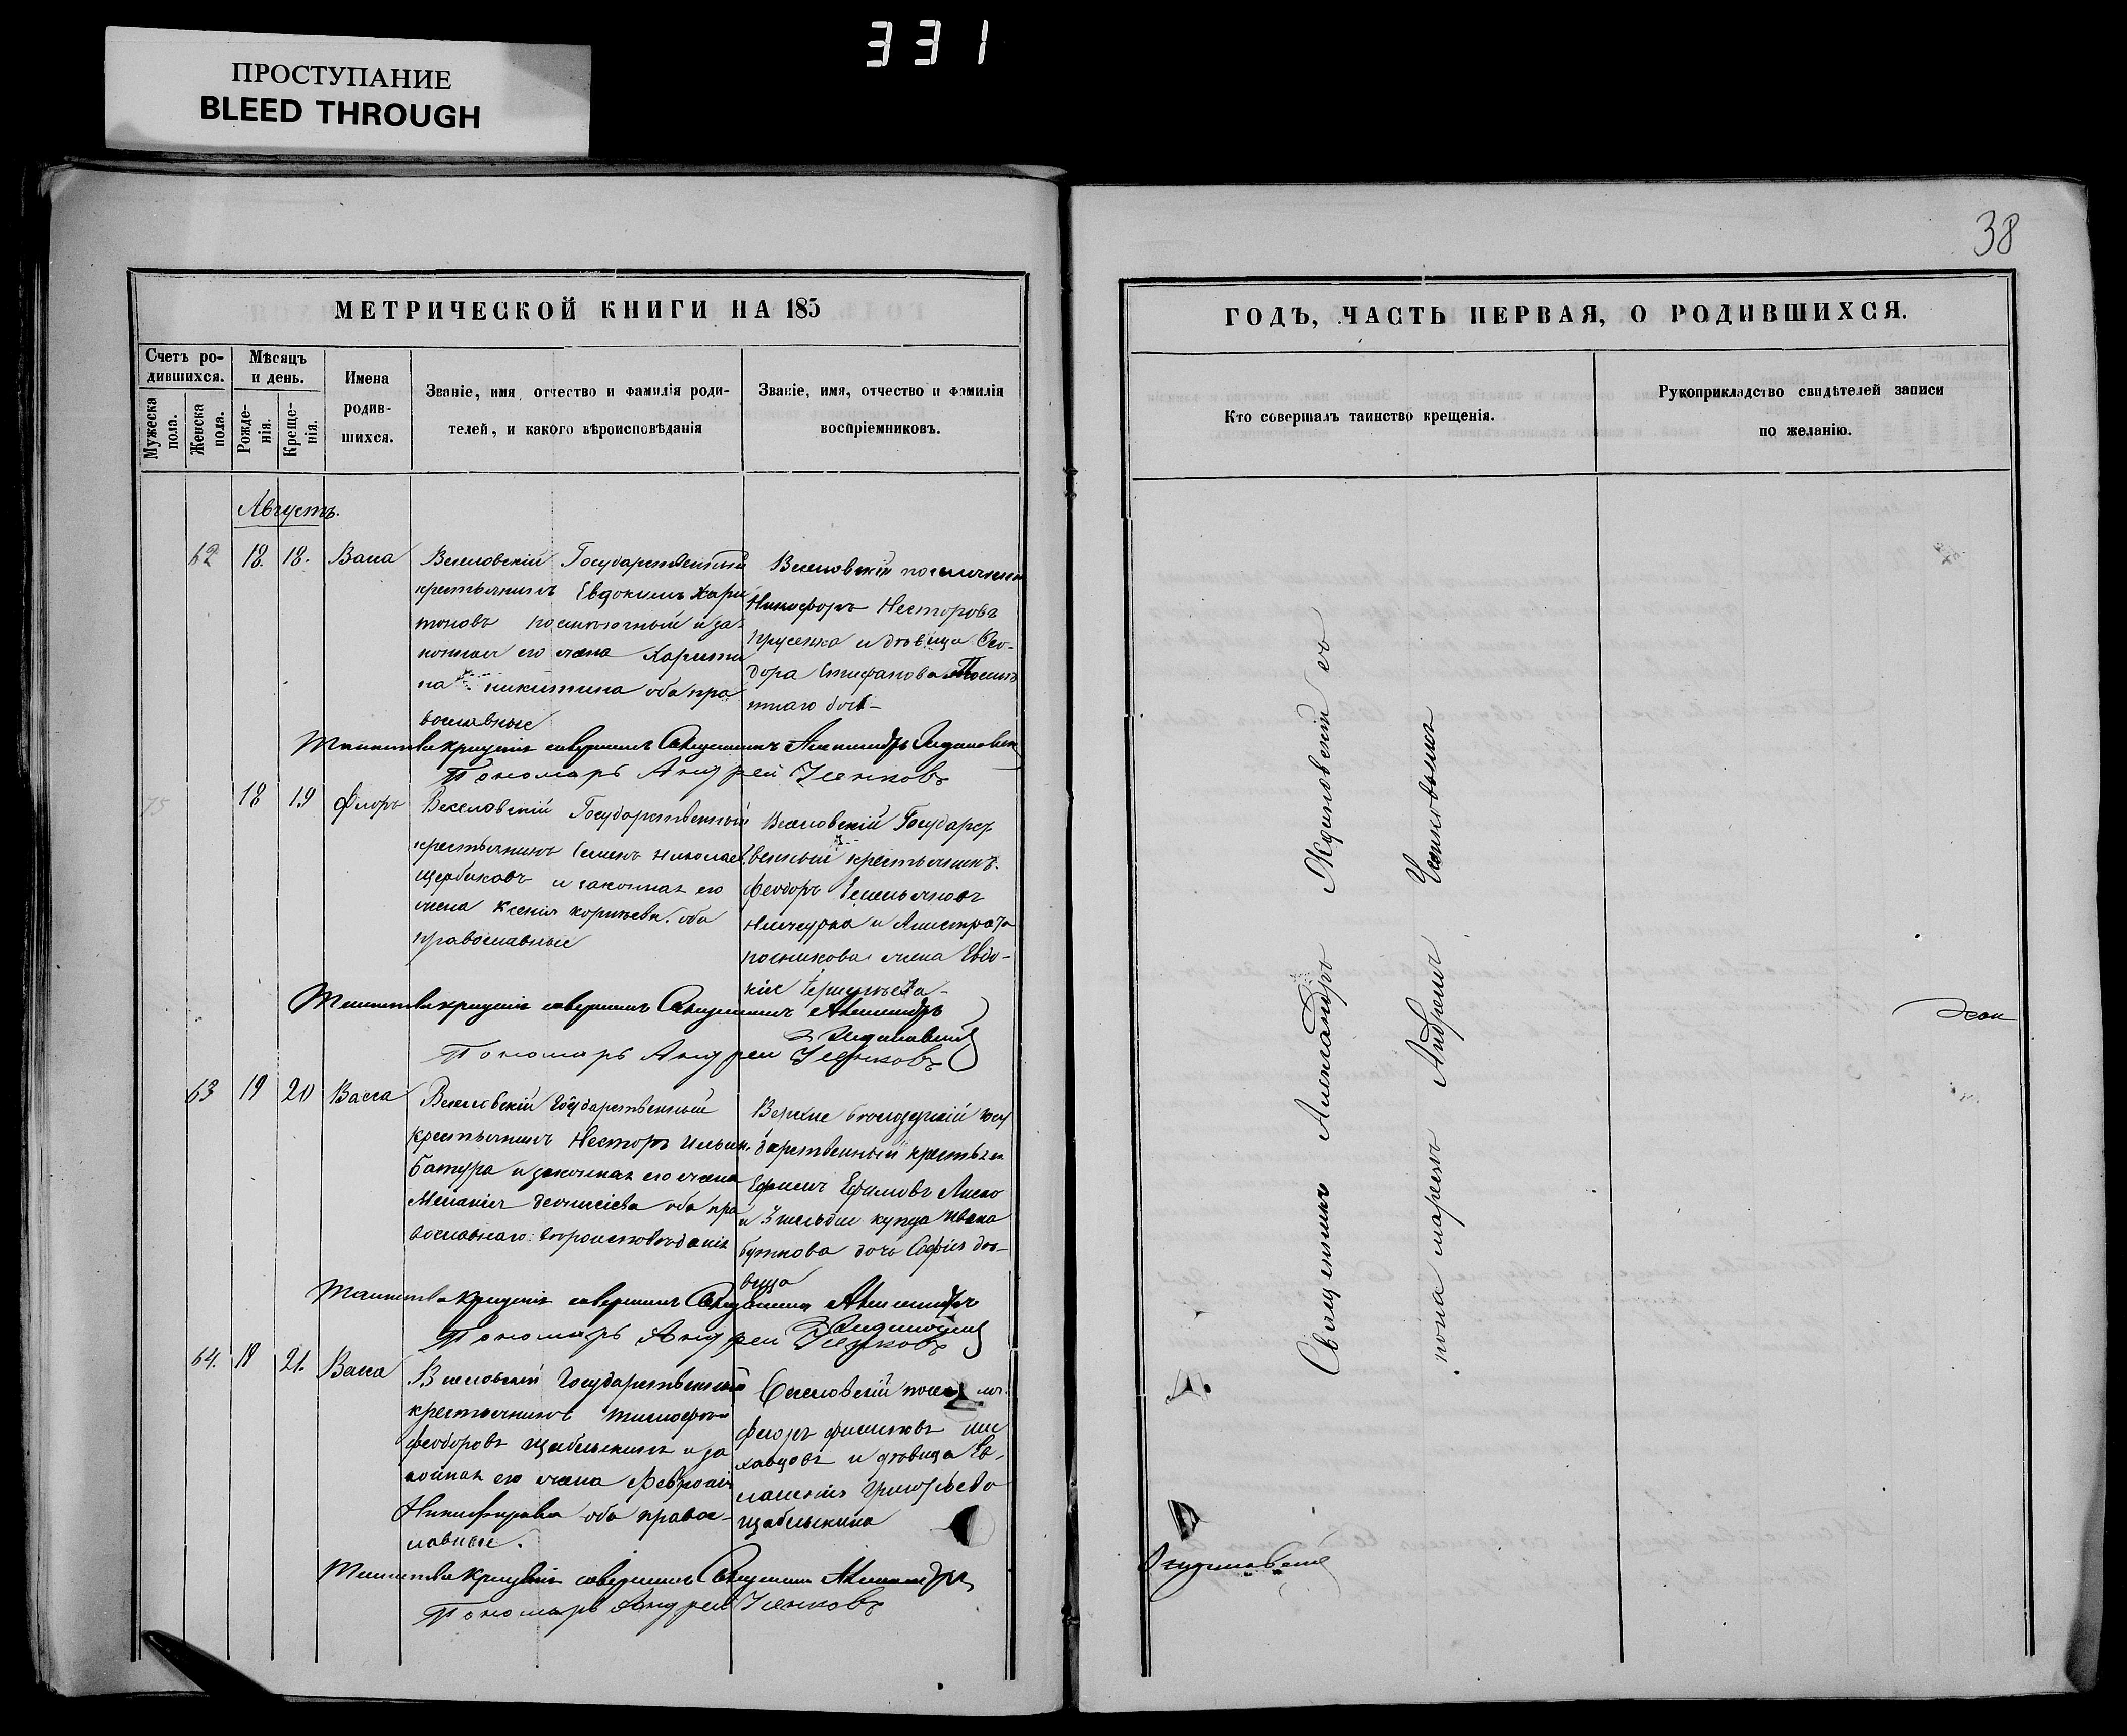 331
ПРОСТУПАНИЕ
BLEED THROUGH
38
МЕТРИЧЕСКОЙ КНИГИ НА 185
Счетъ ро-
дившихся.
Мужеска
пола.
Женска
пола.
Мѣсяцъ
и день.
Рожде-
нія.
Креще-
нія.
Имена
родив-
шихся.
Званіе, имя, отчество и фамилія роди-
телей, и какого вѣроисповѣданія
Званіе, имя, отчество и фамилія
воспріемниковъ.
Августъ.
62 18. 18. Васса
Веселовскій Государственный
крестьянинъ Евдокимъ Хари
тоновъ и за-
конная его жена Харити
на никитина оба пра
вославные
Веселовскій
Никифоръ Несторовъ
Прусенко и дѣвица Ѳео-
дора Стефанова
Таинство крещенія совершилъ Священникъ Александръ
Пономарь Андрей Усенковъ
75 18 19 Флоръ
Веселовскій Государственный
крестьянинъ Семенъ Николаев.
Щербаковъ и законная его
жена Ксенія корнѣева оба
православные
Веселовскій Государст
венный крестьянинъ
Феодоръ Емельяновъ
и
жена Евдо-
кія
Таинство крещенія совершилъ Священникъ Александръ
Пономарь Андрей Усенковъ
63 19 20 Васса
Веселовскій Государственный
крестьянинъ Несторъ Ильин.
Батура и законная его жена
Меланія деонисіева оба пра
вославнаго вѣроисповѣданія
Верхне Госу
дарственный крестьян
Ефимовъ Лиско
и купца Ивана
Буткова дочь Софія дѣ-
вица
Таинство крещенія совершилъ Священникъ Александръ
Пономарь Андрей Усенковъ
64. 19 21. Васса
Веселовскій Государственный
крестьянинъ тимофей
феодоровъ Щабельникъ и за
конная его жена Февронія
Никифорова оба правос-
лавные.
Веселовскій
флоръ филиповъ
и дѣвица Ев-
лампія Григорьева
Щабелькина
Таинство крещенія совершилъ Священникъ Александръ
Пономарь Андрей Усенковъ
ГОДЪ, ЧАСТЬ ПЕРВАЯ, О РОДИВШИХСЯ.
Кто совершалъ таинство крещенія.
Рукоприкладство свидѣтелей записи
по желанію.
Священникъ Александръ Ждановскій со
пономаремъ Андреемъ Усенковымъ